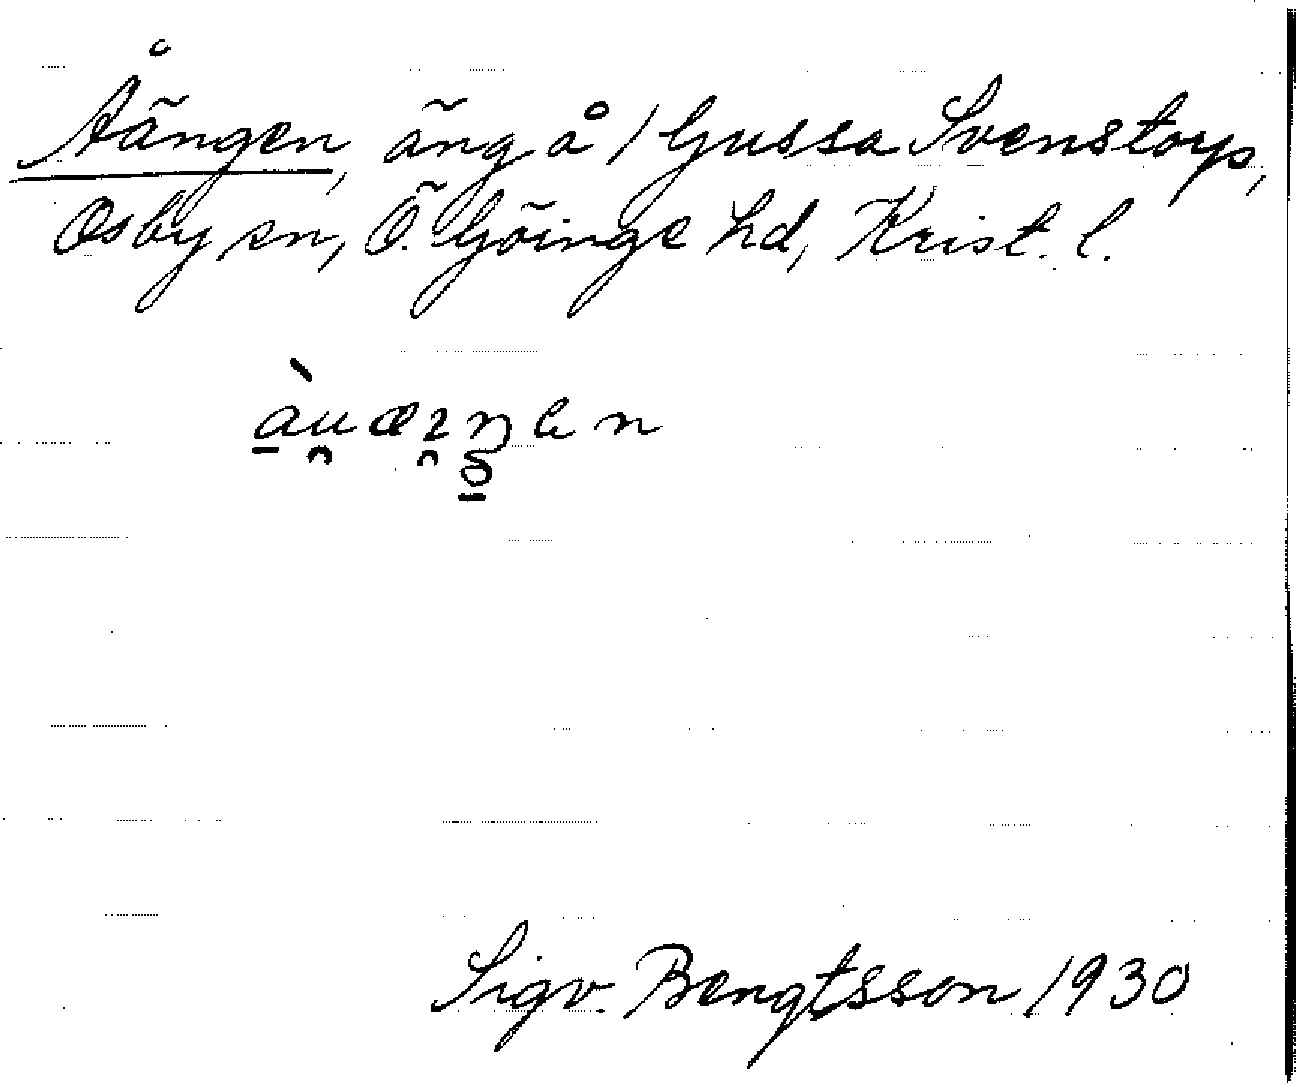 Åängen, äng å 1 Gussa Svenstorp,
Osby sn, Ö. Göinge hd, Krist. l.
Sigv. Bengtsson 1930